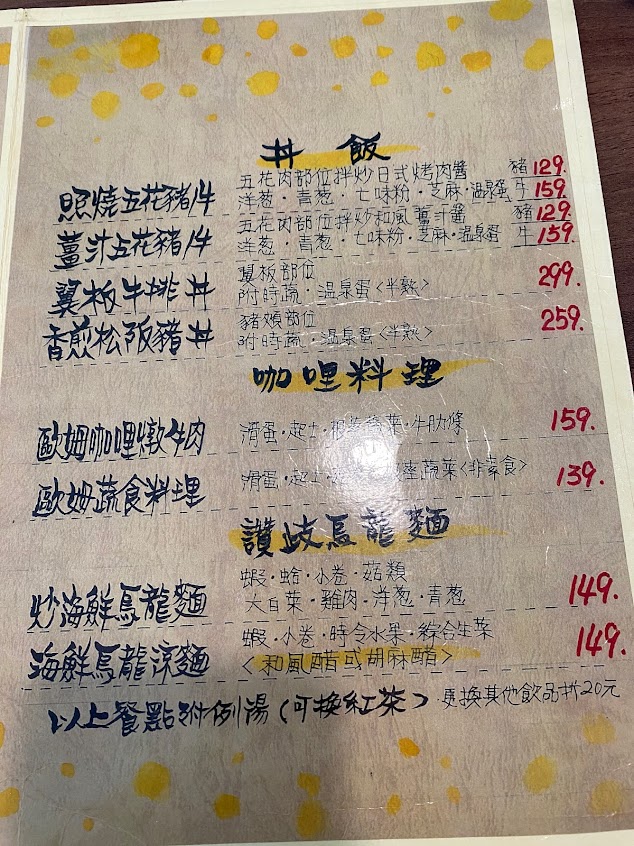 丼飯
照燒五花豬/牛 五花肉部位拌炒日式烤肉醬 豬 129.
洋葱·青葱·七味粉·芝麻·温泉蛋 牛 159.
薑汁五花豬/牛 五花肉部位拌炒和風薑汁醬 豬 129.
洋葱·青葱·七味粉·芝麻·温泉蛋 牛 159.
翼板牛排丼 翼板部位 299.
附時蔬·温泉蛋<半熟>
香煎松阪豬丼 豬頰部位 259.
附時蔬·温泉蛋<半熟>
咖哩料理
歐姆咖哩燉牛肉 滑蛋·起士·牛肋條 159.
歐姆蔬食料理 滑蛋·起士·蔬菜<非素食> 139.
讚岐烏龍麵
炒海鮮烏龍麵 蝦·蛤·小卷·菇類 149.
大白菜·雞肉·洋葱·青葱
海鮮烏龍涼麵 蝦·小卷·時令水果·綜合生菜 149.
<和風醋或胡麻醋>
以上餐點附例湯(可換紅茶) 更換其他飲品折20元